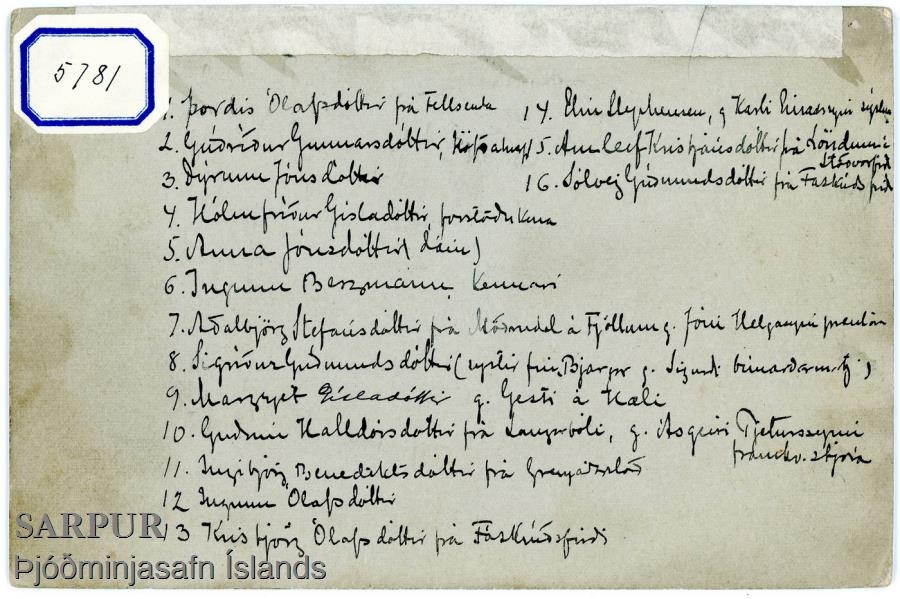 5781
1. Þordis Ólafsdóttir frá Fellsenda
2. Gúðríður Gunnarsdóttir,
3. Dýrunn Jónsdóttir
4. Hólmfríður Gísladóttir, forstöðukona
5. Anna Jónsdóttir (dáin)
6. Ingunn Bergmann, Kennari
7. Aðalbjörg Stefánsdóttir frá Möðrudal á Fjöllum g. Jóni Helgasyni prentara
8. Sigríður Guðmundsdóttir ( g. Sigurði búnaðarm.stj )
9. Margrjet Gísladóttir g. Gesti á Hæli
10. Guðrún Halldórsdóttir frá g. Ásgeiri Pjeturssyni
11. Ingibjörg Benediktsdóttir frá Grenjaðarstað
12 Ingunn Ólafsdóttir
13 Kristbjörg Ólafsdóttir frá Fáskrúðsfirði
14. Elin Stephensen, g Karli Einarssyni sýslum
15. Annleif Kristjánsdóttir frá Löndum í
Stöðvarfirði
16. Sólveig Guðmundsdóttir frá Faskrúðsfirði
SARPUR
Þjóðminjasafn Íslands